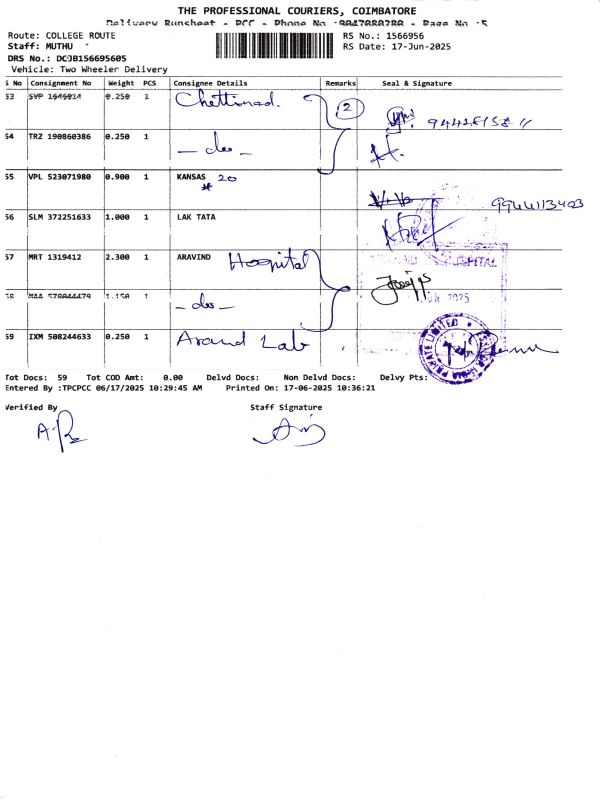 THE PROFESSIONAL COURIERS, COIMBATORE
Delivery Runsheet - PCC - Phone No - Page No - 5
Route: COLLEGE ROUTE RS No.: 1566956
Staff: MUTHU RS Date: 17-Jun-2025
DRS No.: DCJB156695605
Vehicle: Two Wheeler Delivery
S No Consignment No Weight PCS Consignee Details Remarks Seal & Signature
53 SVP 0.250 1 Chettinad. 2
54 TRZ 190860386 0.250 1 - do -
55 VPL 523071980 0.900 1 KANSAS # 20
9944113403
56 SLM 372251633 1.000 1 LAK TATA
57 MRT 1319412 2.300 1 ARAVIND Hospital
HOSPITAL
58 MAA 1.150 1 - do -
2025
59 IXM 508244633 0.250 1 Aravind Lab
PRIVATE LIMITED
Tot Docs: 59 Tot COD Amt: 0.00 Delvd Docs: Non Delvd Docs: Delvy Pts:
Entered By :TPCPCC 06/17/2025 10:29:45 AM Printed On: 17-06-2025 10:36:21
Verified By Staff Signature